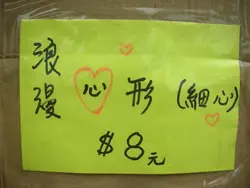 浪漫 心 形 (細心)
$8元